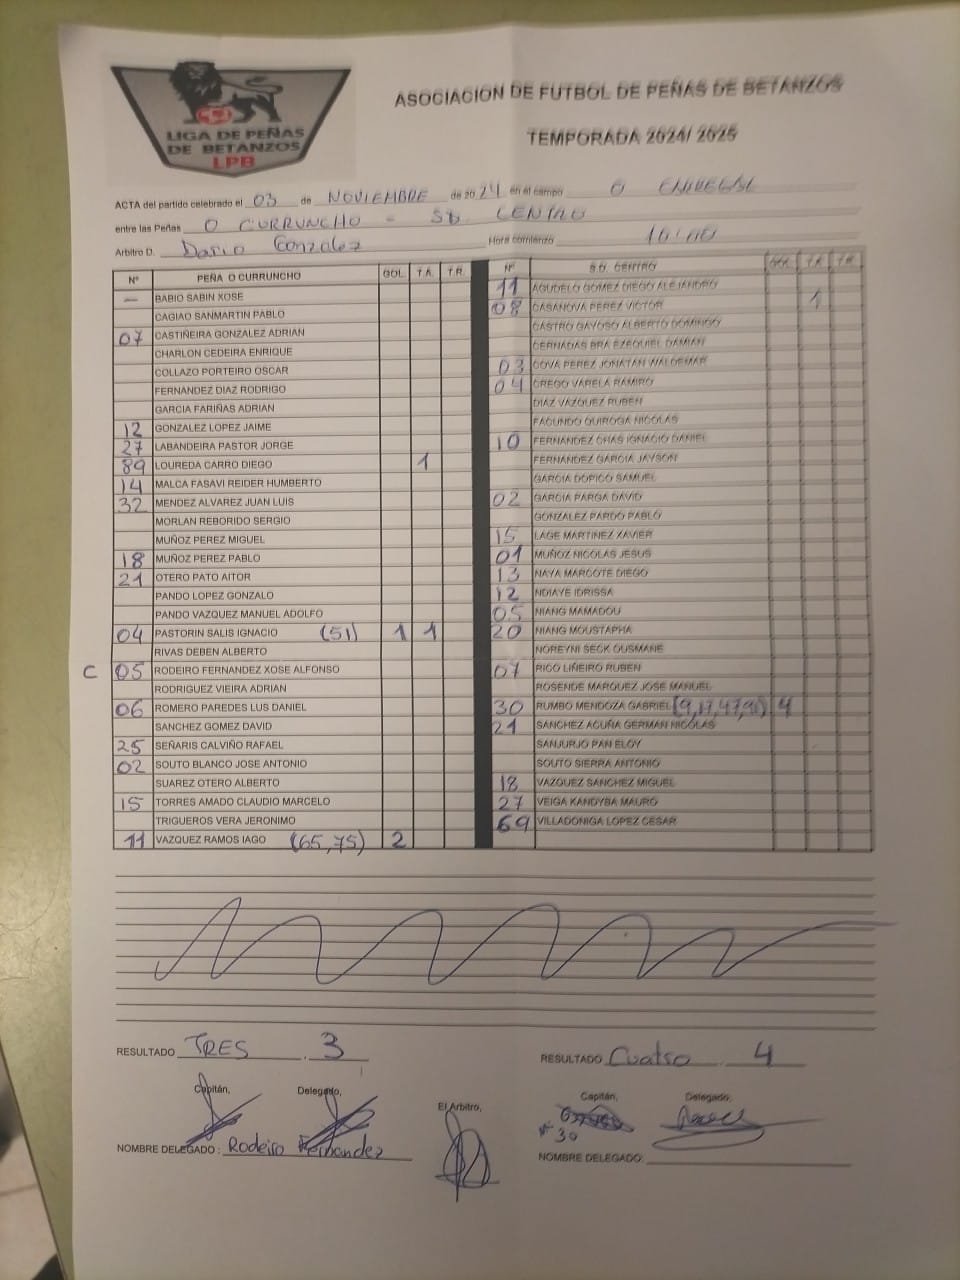 LIGA DE PEÑAS
DE BETANZOS
LPB
ASOCIACION DE FUTBOL DE PEÑAS DE BETANZOS
TEMPORADA 2024/ 2025
ACTA del partido celebrado el 03 de NOVIEMBRE de 2024 en el campo O
entre las Peñas O CURRUNCHO - SD CENTRO
Arbitro D. Dario Gonzalez Hora comienzo
Nº PEÑA O CURRUNCHO GOL T.A. T.R.
— BABIO SABIN XOSE
CAGIAO SANMARTIN PABLO
07 CASTIÑEIRA GONZALEZ ADRIAN
CHARLON CEDEIRA ENRIQUE
COLLAZO PORTEIRO OSCAR
FERNANDEZ DIAZ RODRIGO
GARCIA FARIÑAS ADRIAN
12 GONZALEZ LOPEZ JAIME
27 LABANDEIRA PASTOR JORGE
89 LOUREDA CARRO DIEGO 1
14 MALCA FASAVI REIDER HUMBERTO
32 MENDEZ ALVAREZ JUAN LUIS
MORLAN REBORIDO SERGIO
MUÑOZ PEREZ MIGUEL
18 MUÑOZ PEREZ PABLO
21 OTERO PATO AITOR
PANDO LOPEZ GONZALO
PANDO VAZQUEZ MANUEL ADOLFO
04 PASTORIN SALIS IGNACIO (51) 1 1
RIVAS DEBEN ALBERTO
C 05 RODEIRO FERNANDEZ XOSE ALFONSO
RODRIGUEZ VIEIRA ADRIAN
06 ROMERO PAREDES LUS DANIEL
SANCHEZ GOMEZ DAVID
25 SEÑARIS CALVIÑO RAFAEL
02 SOUTO BLANCO JOSE ANTONIO
SUAREZ OTERO ALBERTO
15 TORRES AMADO CLAUDIO MARCELO
TRIGUEROS VERA JERONIMO
11 VAZQUEZ RAMOS IAGO (65,75) 2
Nº S.D. CENTRO GOL T.A. T.R.
11 AGUDELO GOMEZ DIEGO ALEJANDRO
08 CASANOVA PEREZ VICTOR 1
CASTRO GAYOSO ALBERTO DOMINGO
CERNADAS BRA EZEQUIEL DAMIAN
03 COVA PEREZ JONATAN WALDEMAR
04 CREGO VARELA RAMIRO
DIAZ VAZQUEZ RUBEN
FACUNDO QUIROGA NICOLAS
10 FERNANDEZ CHAS IGNACIO DANIEL
FERNANDEZ GARCIA JAYSON
GARCIA DOPICO SAMUEL
02 GARCIA PARGA DAVID
GONZALEZ PARDO PABLO
15 LAGE MARTINEZ XAVIER
01 MUÑOZ NICOLAS JESUS
13 NAYA MARGOTE DIEGO
12 NDIAYE IDRISSA
05 NIANG MAMADOU
20 NIANG MOUSTAPHA
NOREYNI SECK OUSMANE
07 RICO LIÑEIRO RUBEN
ROSENDE MARQUEZ JOSE MANUEL
30 RUMBO MENDOZA GABRIEL (9,17,47,91) 4
21 SANCHEZ ACUÑA GERMAN NICOLAS
SANJURJO PAN ELOY
SOUTO SIERRA ANTONIO
18 VAZQUEZ SANCHEZ MIGUEL
27 VEIGA KANDYBA MAURO
69 VILLADONIGA LOPEZ CESAR
RESULTADO TRES . 3
RESULTADO Cuatro . 4
Capitán, Delegado,
El Arbitro,
Capitán, Delegado,
# 30
NOMBRE DELEGADO : Rodeiro Fernandez
NOMBRE DELEGADO: